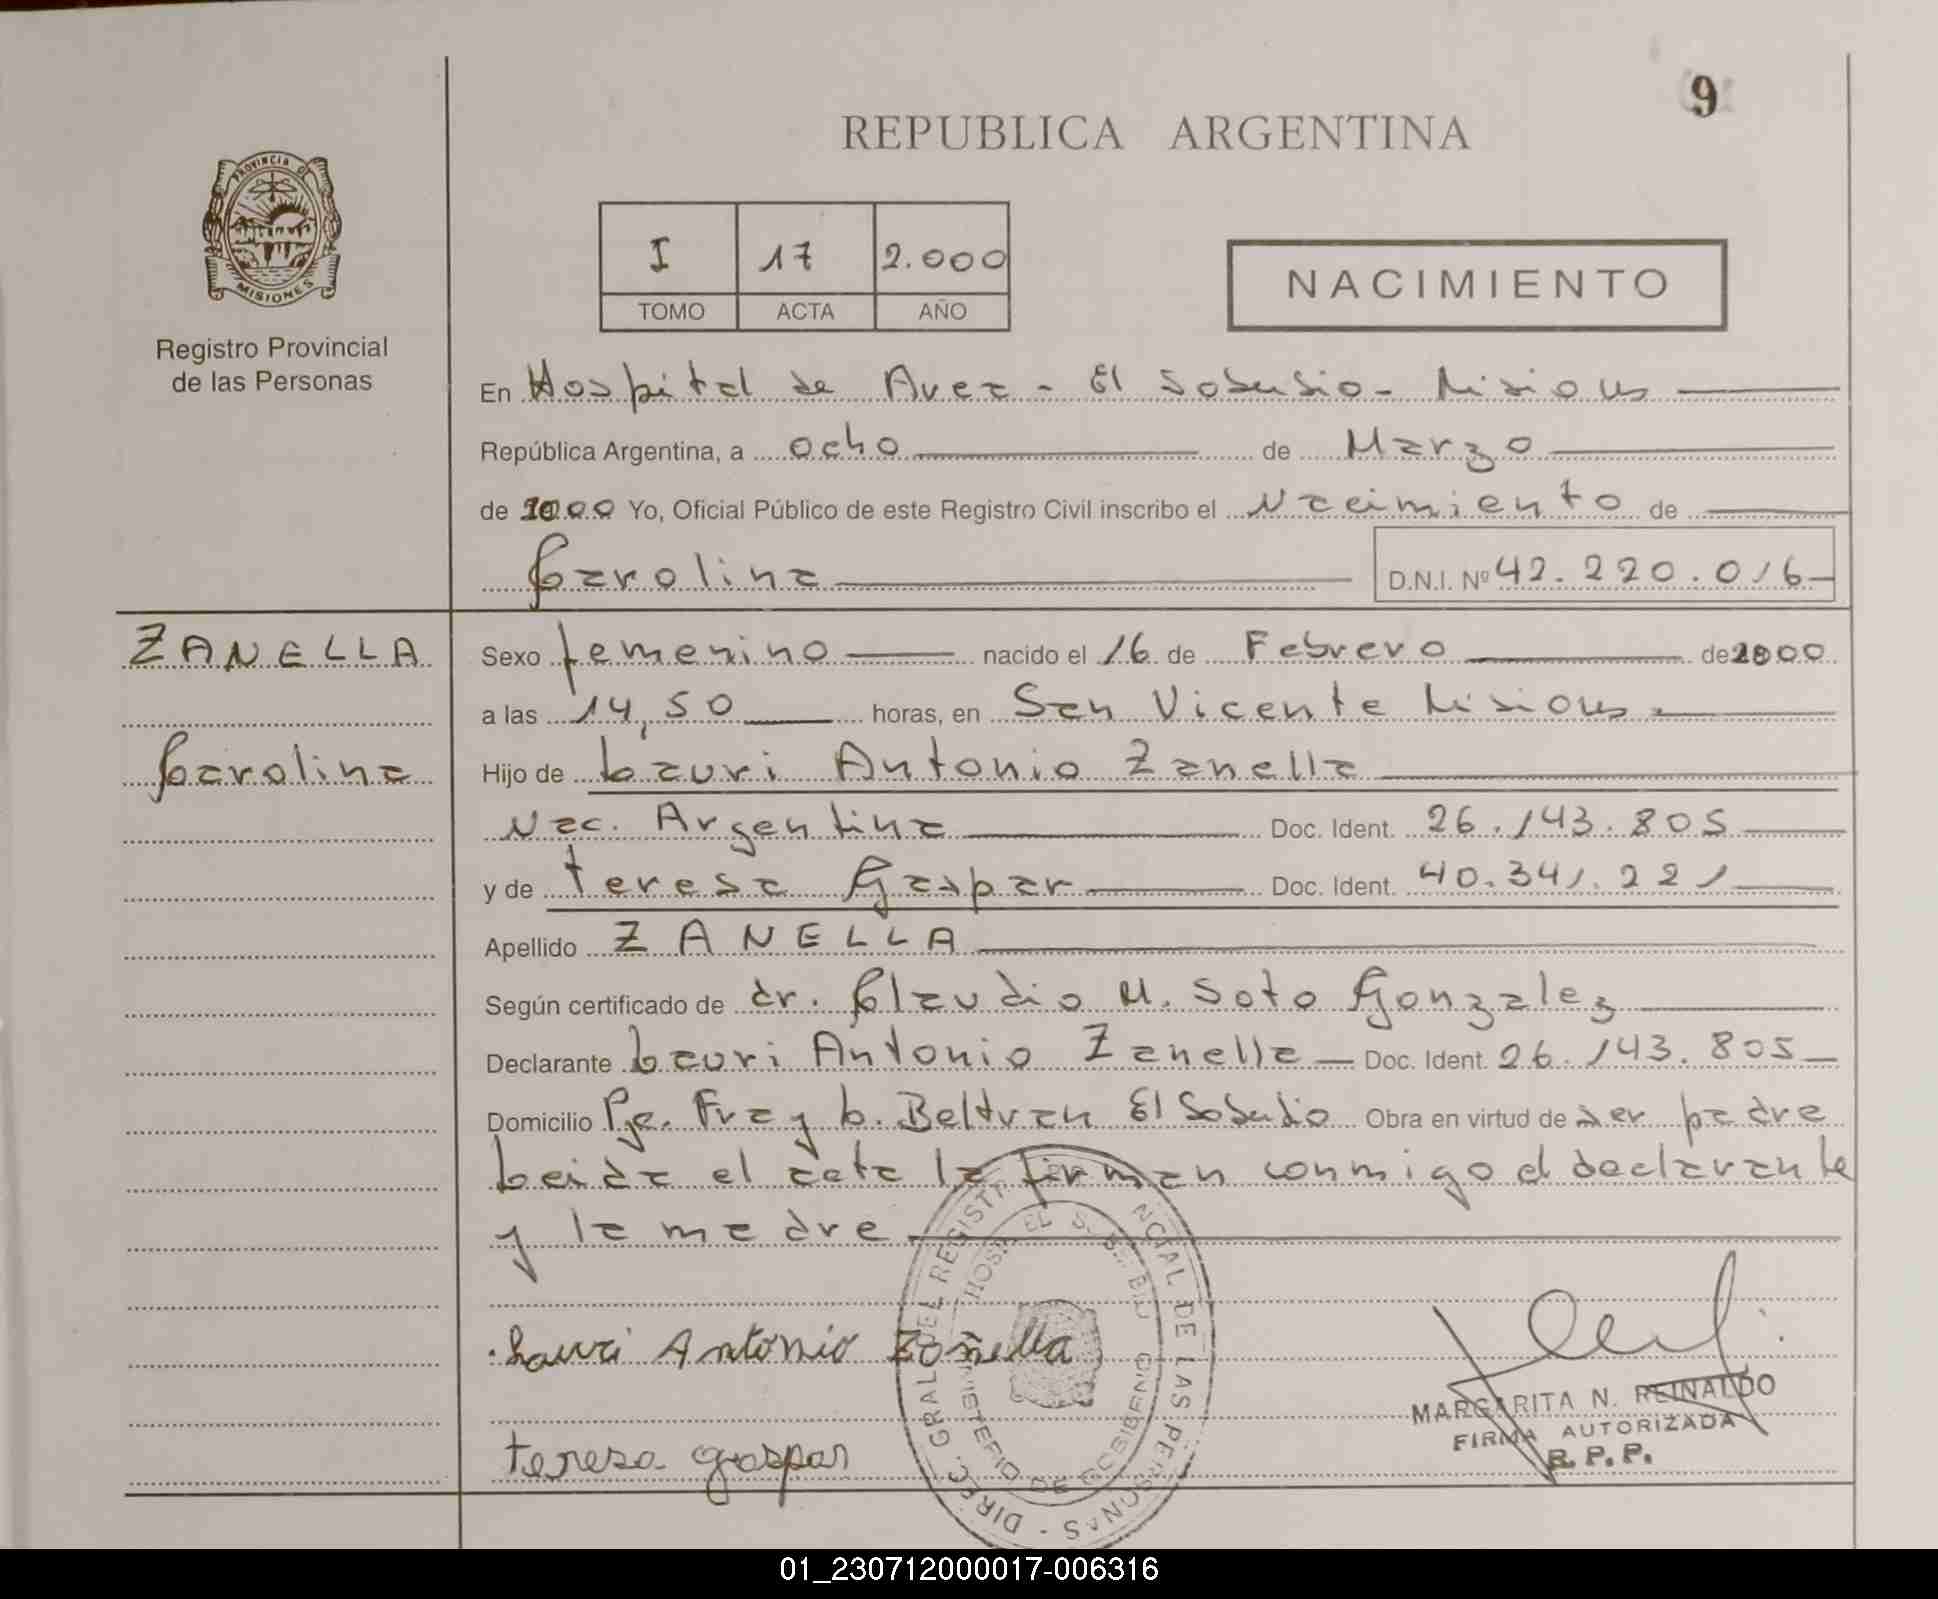 9
REPUBLICA ARGENTINA
PROVINCIA DE
MISIONES
Registro Provincial
de las Personas
I 17 2.000
TOMO ACTA AÑO
NACIMIENTO
En Hospital de Area - El Soberbio - Misiones
República Argentina, a ocho de Marzo
de 2000 Yo, Oficial Público de este Registro Civil inscribo el Nacimiento de
Carolina D.N.I. Nº 42.220.016
ZANELLA
Carolina
Sexo femenino nacido el 16 de Febrero de 2000
a las 14,50 horas, en San Vicente Misiones
Hijo de Lauri Antonio Zanella
Nac. Argentina Doc. Ident. 26.143.805
y de Teresa Gaspar Doc. Ident. 40.341.221
Apellido ZANELLA
Según certificado de dr. Claudio M. Soto Gonzalez
Declarante Lauri Antonio Zanella Doc. Ident. 26.143.805
Domicilio Pje. Fray L. Beltran El Soberbio Obra en virtud de ser padre
Leida el acta la firman conmigo el declarante
y la madre
Lauri Antonio Zanella
Teresa gaspar
MARGARITA N. REINALDO
FIRMA AUTORIZADA
R.P.P.
01_230712000017-006316